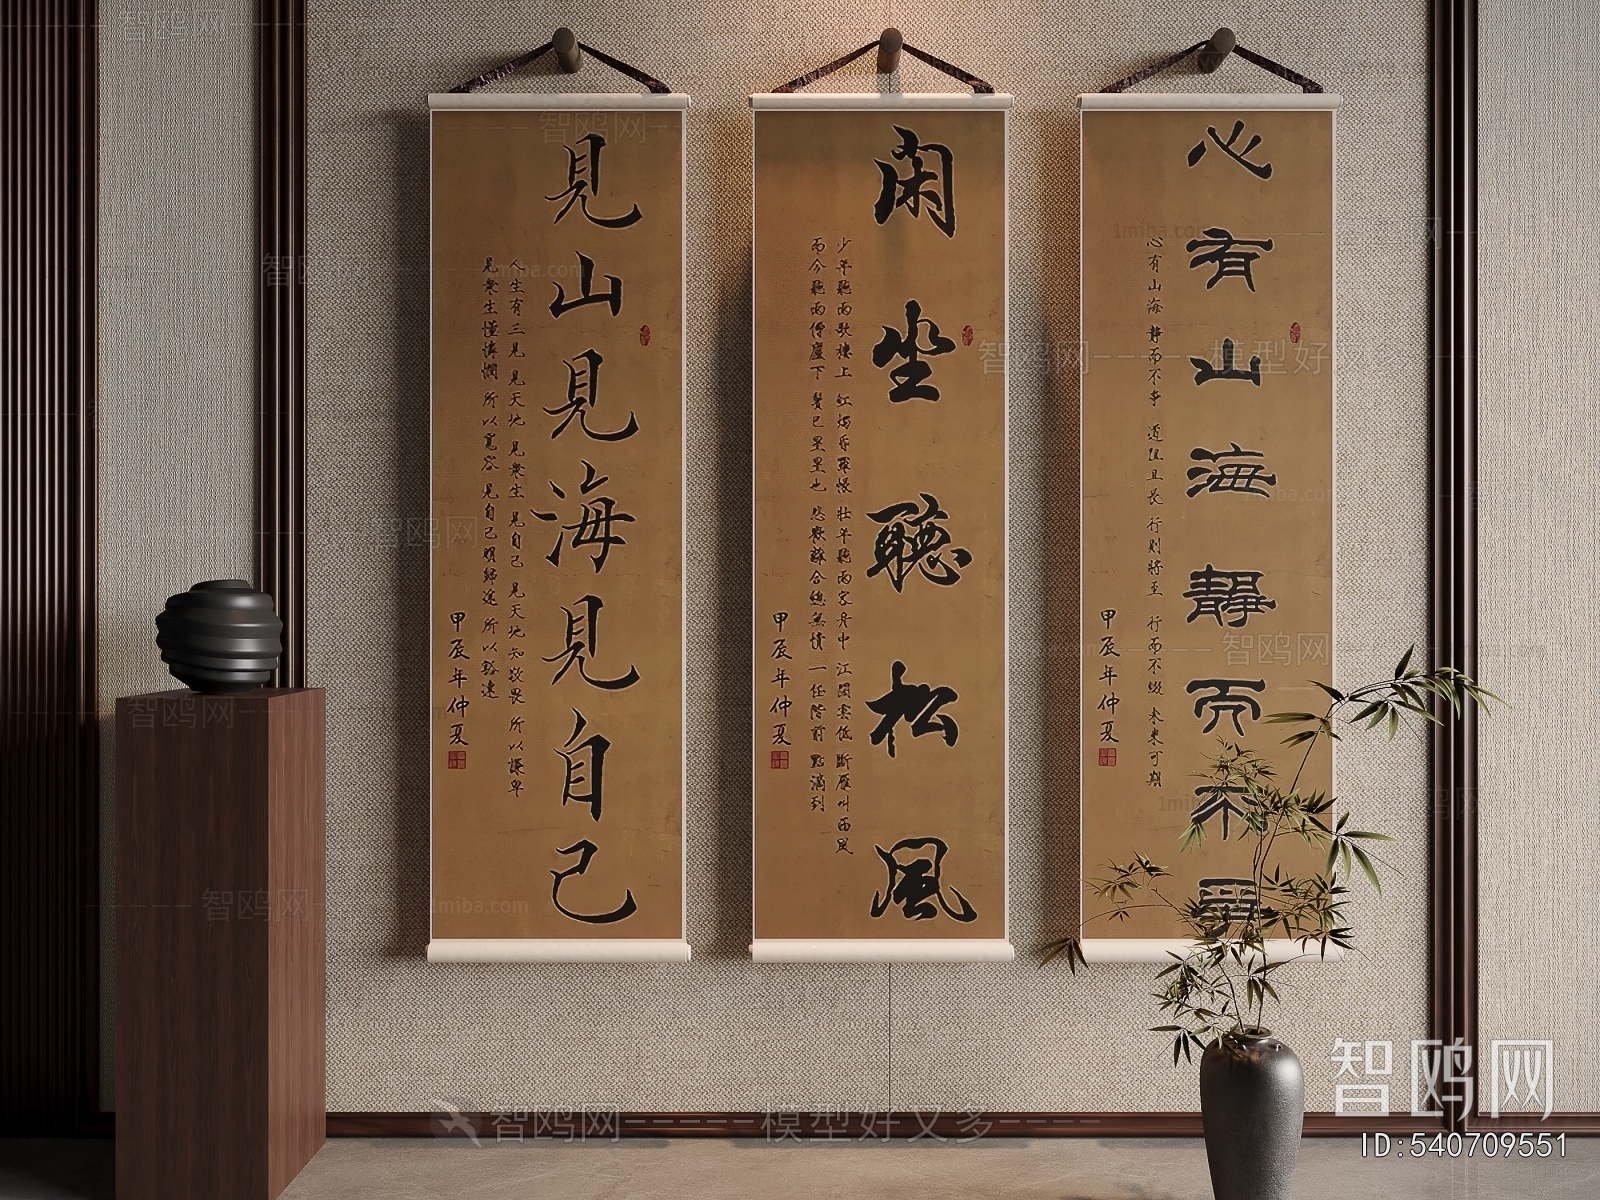 見山見海見自己
人生有三見 見天地 見衆生 見自己 見天地知敬畏 所以謙卑
見衆生懂憐憫 所以寬容 見自己明歸途 所以豁達
甲辰年仲夏
閑坐聽松風
少年聽雨歌樓上 紅燭昏羅帳 壯年聽雨客舟中 江闊雲低 斷雁叫西風
而今聽雨僧廬下 鬢已星星也 悲歡離合總無情 一任階前 點滴到
甲辰年仲夏
心有山海靜而不爭
心有山海 靜而不争 道阻且长 行则將至 行而不輟 未來可期
甲辰年仲夏
智鸥网
ID:540709551
智鸥网-----模型好又多----
1miba.com